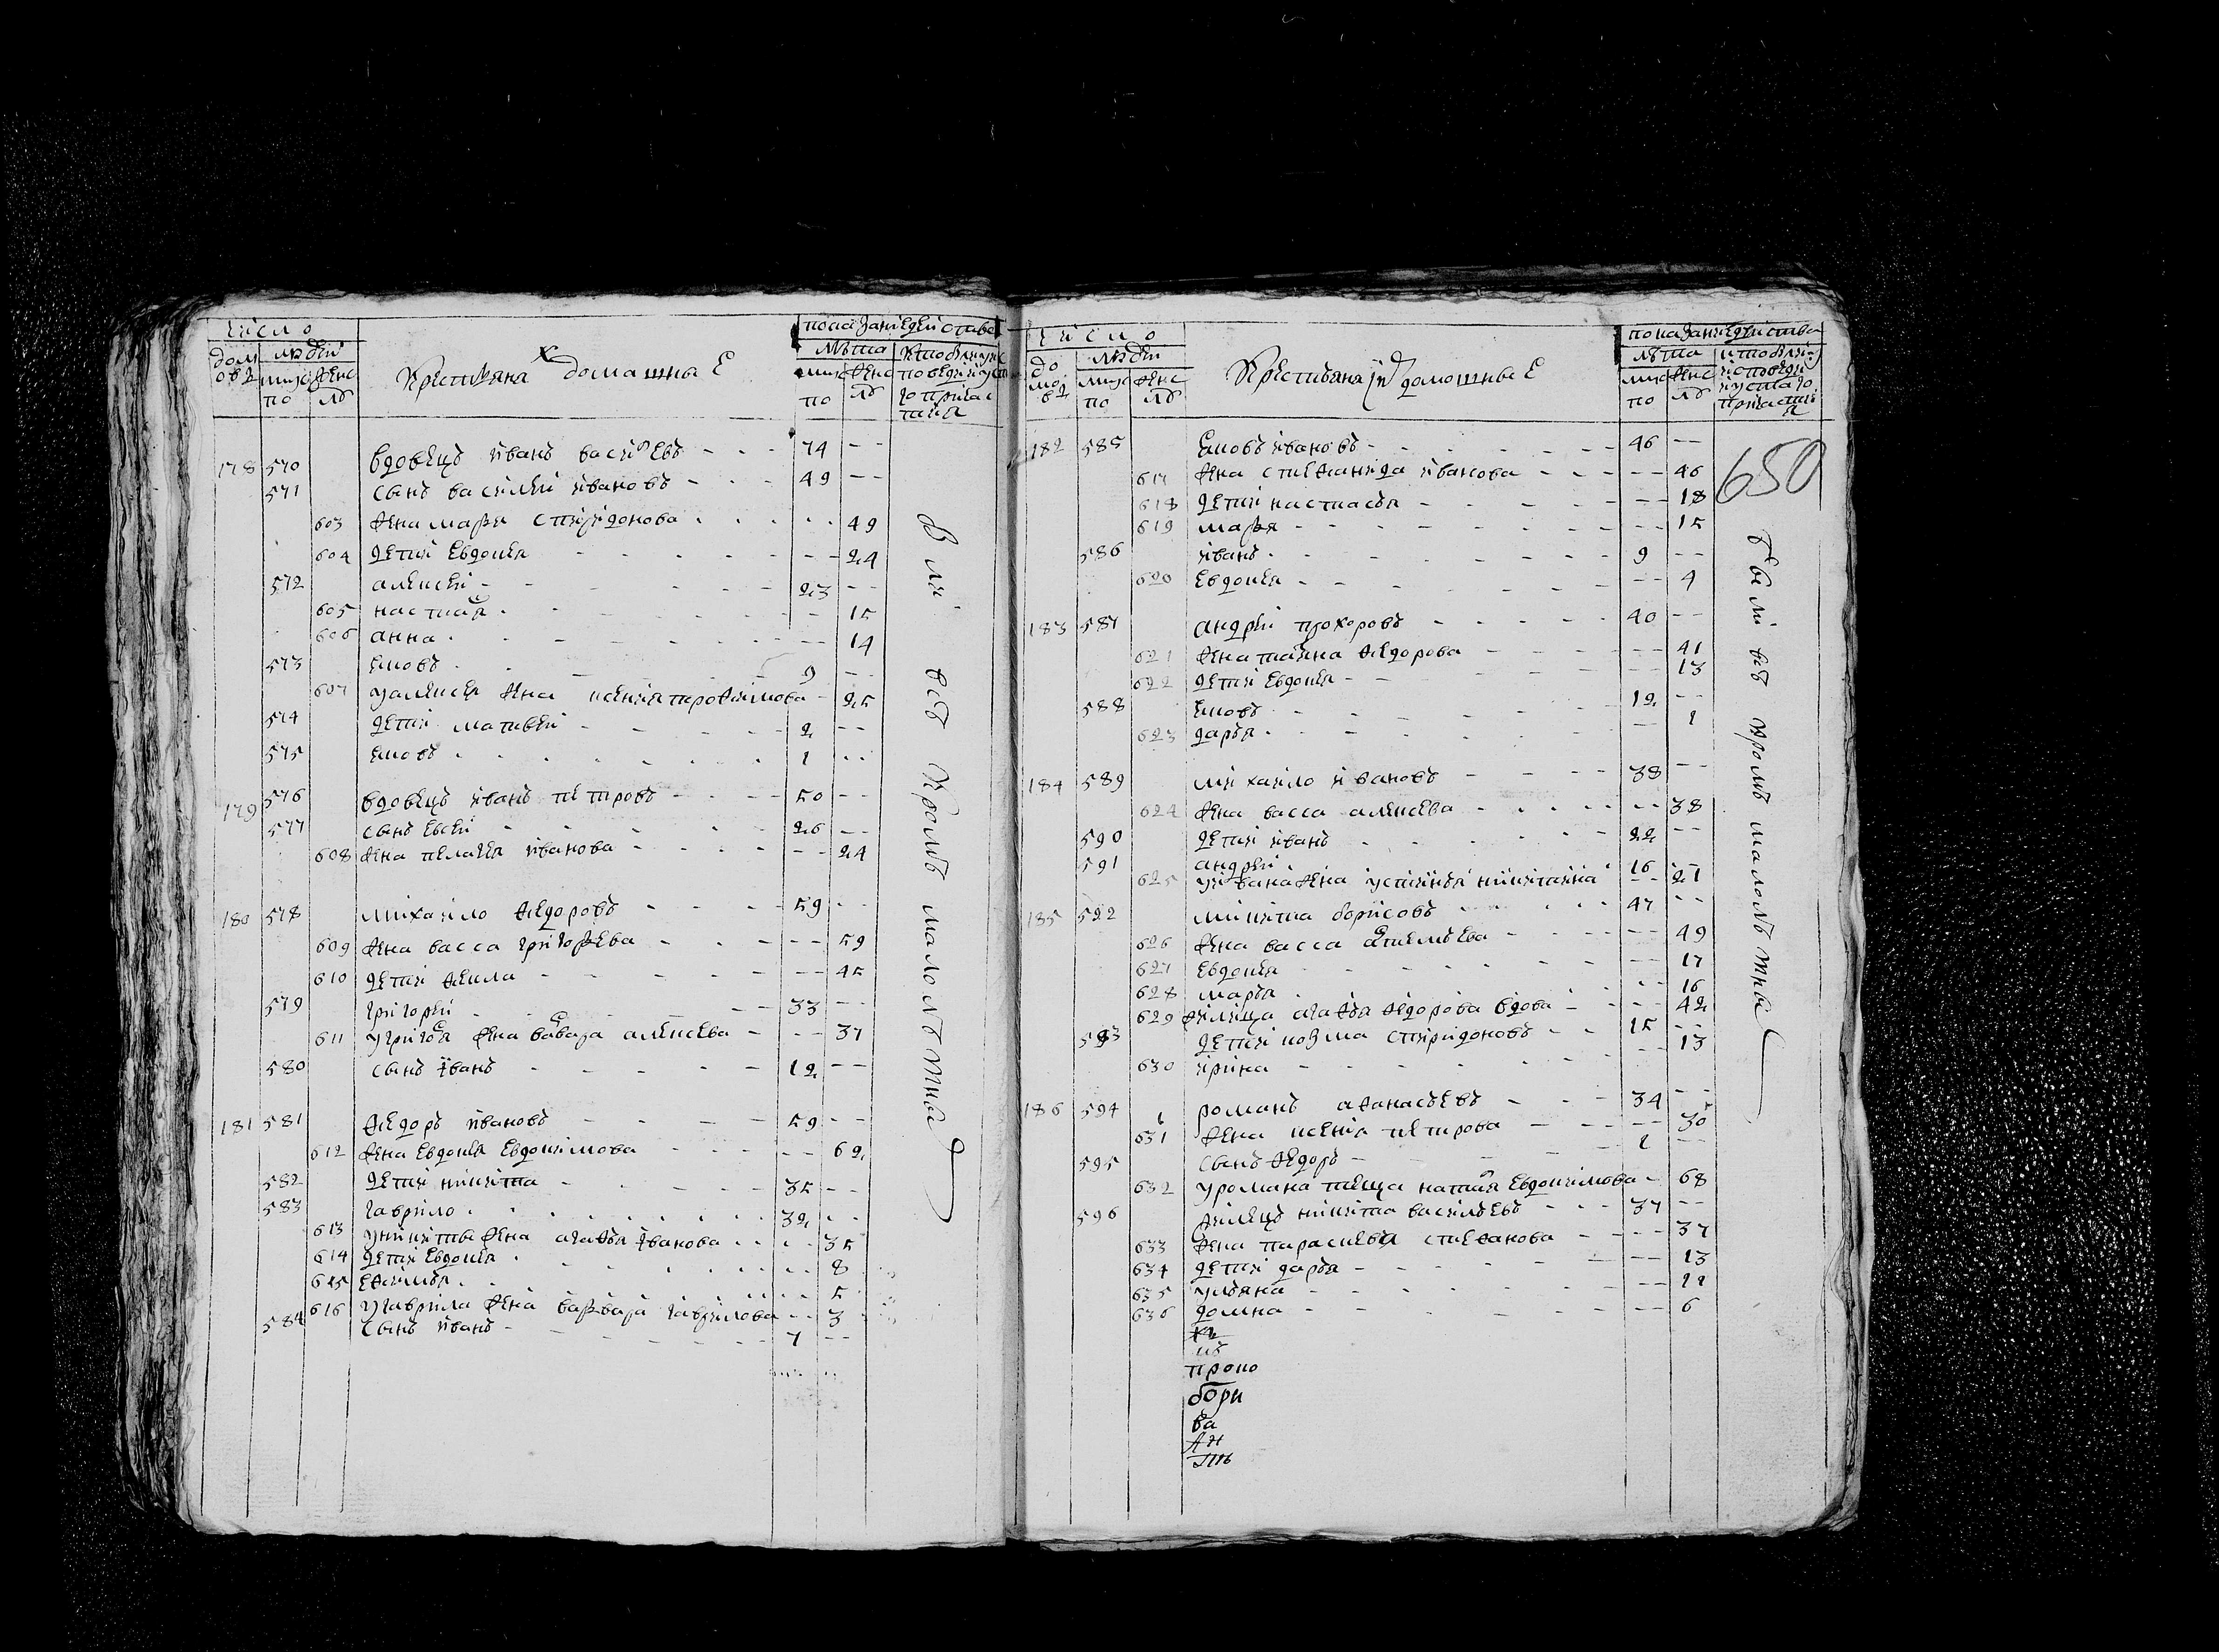 число
показание действа
домовъ
людей
лѣта
мужеско
женска
Крестьяна и х домашные
178 570 вдовецъ иванъ василевъ 74 --
571 сынъ василей ивановъ 49 --
603 жена марья спиридонова -- 49
604 дети евдокея -- 24
572 алексей 23 --
605 настася -- 15
606 анна -- 14
573 яковъ 9 --
607 у алексея жена ксения трофимова -- 25
574 дети матвей 2 --
575 яковъ 1 --
179 576 вдовецъ иванъ петровъ 50 --
577 сынъ евсей 26 --
608 жена пелагея иванова -- 24
180 578 михаило федоровъ 59 --
609 жена васса григорьева -- 59
610 дети фекла -- 45
579 григорей 33 --
611 у григоря жена варвара алексеева -- 37
580 сынъ иванъ 12 --
181 581 федоръ ивановъ 59 --
612 жена евдокея евдокимова -- 62
582 дети никита 35 --
583 гаврило 32 --
613 у никиты жена агафья иванова -- 35
614 дети евдокея -- 8
615 ефимья -- 5
616 у гаврила жена варвара гаврилова -- 3
584 сынъ иванъ 7 --
Были все кромѣ малолѣтныхъ
число
показание действа
людей
лѣта
мужеско
женска
Крестьяна и их домошные
650
182 585 яковъ ивановъ 46 --
617 жена стефанида иванова -- 46
618 дети настасья -- 18
619 марья -- 15
586 иванъ 9 --
620 евдокея -- 4
183 587 андрей прохоровъ 40 --
621 жена татьяна федорова -- 41
622 дети евдокея -- 13
588 яковъ 12 --
623 дарья -- 1
184 589 михаило ивановъ 38 --
624 жена васса алексеева -- 38
590 дети иванъ 22 --
591 андрей 16 --
625 у ивана жена устинья никитина -- 21
185 592 никита борисовъ 47 --
626 жена васса -- 49
627 евдокея -- 17
628 марья -- 16
629 жилица агафья федорова вдова -- 42
593 дети козма спиридоновъ 15 --
630 ирина -- 13
186 594 романъ афанасьевъ 34 --
631 жена ксения петрова -- 30
595 сынъ федоръ 1 --
632 у романа теща евдокимова -- 68
596 жилецъ никита васильевъ 37 --
633 жена парасковья стефанова -- 37
634 дети дарья -- 13
635 ульяна -- 11
636 домна -- 6
къ
проко
бори
ва
Ан
Были всѣ кромѣ малолѣтныхъ